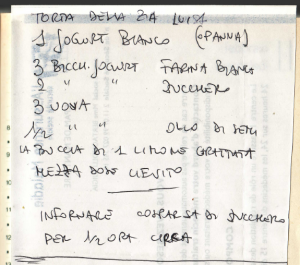 TORTA DELLA ZIA LUISA
1 JOGURT BIANCO (O PANNA)
3 BICCH. JOGURT FARINA BIANCA
2 " " ZUCCHERO
3 UOVA
1/2 " " OLIO DI SEMI
LA BUCCIA DI 1 LIMONE GRATTATA
MEZZA DOSE LIEVITO
INFORNARE COSPARSA DI ZUCCHERO
PER 1/2 ORA CIRCA